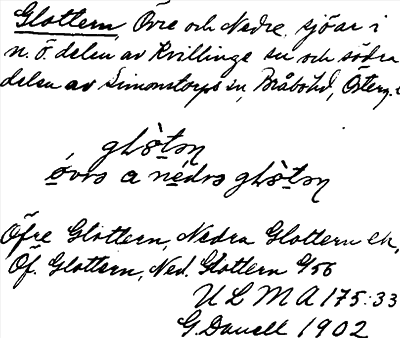 Glottern, Övre och Nedre, sjöar i
n. ö. delen av Kvillinge sn och södra
delen av Simonstorps sn, Bråbohd, Österg.
övre a nedre
Öfre Glottern, Nedra Glottern ek,
Öf. Glottern, Ned. Glottern G/56
U L M A 175:33
G. Danell 1902